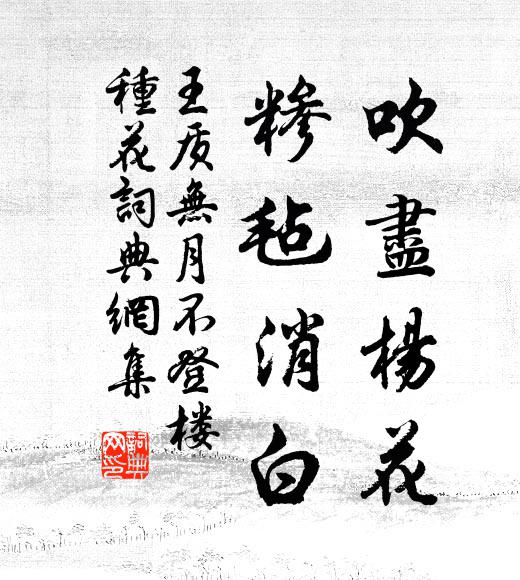 吹盡楊花
糝毡消白
王质無月不登楼
種花詞典網集
詞典
网印